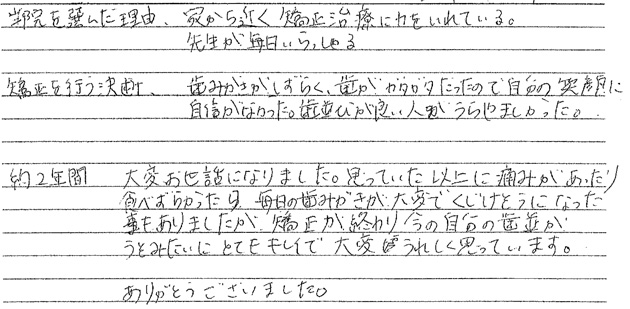 当院を選んだ理由、家から近く矯正治療に力をいれている。
先生が毎日いらっしゃる
矯正を行う決断、歯みがきがしずらく、歯がガタガタだったので自分の笑顔に
自信がなかった。歯並びが良い人がうらやましかった。
約2年間 大変お世話になりました。思っていた以上に痛みがあったり
食べずらかったり、毎日の歯みがきが大変でくじけそうになった
事もありましたが、矯正が終わり今の自分の歯並が
うそみたいにとてもキレイで大変うれしく思っています。
ありがとうございました。